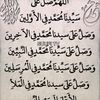 اللهم صل على
سيدنا محمد في الأولين
وصل على سيدنا محمد في الآخرين
وصل على سيدنا محمد في النبيين
وصل على سيدنا محمد في المرسلين
وصل على سيدنا محمد في الملأ